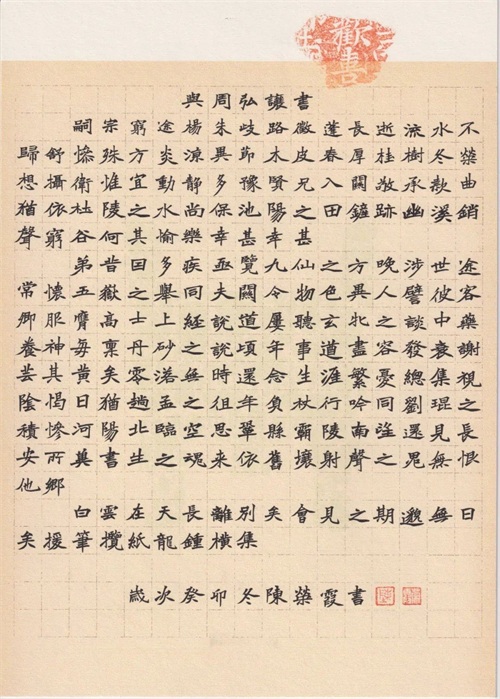 與周弘讓書
嗣宗窮途楊朱岐路徵蓬長逝流水不
歸舒慘殊方炎涼異節木皮春厚桂樹冬榮
想攝衛惟宜動靜多豫賢兄入關敬承款曲
猶依杜陵之水尚保池陽之田鏟跡幽溪銷
聲窮谷何其愉樂幸甚幸甚
弟昔因多疾亟覽九仙之方晚涉世途
常懷五嶽之舉同夫關令物色異人譬彼客
卿服膺高士上經說道屢聽玄牝之談中藥
養神每稟丹砂之說頃年事道盡容發衰謝
芸其黃矣零落無時還念生涯繁憂總集視
陰愒日猶趙孟之徂年負杖行吟同劉琨之
積慘河陽北臨空思鞏縣霸陵南望還見長
安所冀書生之魂來依舊壤射聲之鬼無恨
他鄉
白雲在天長離別矣會見之期邈無日
矣援筆攬紙龍鍾橫集
歲次癸卯冬陳榮霞書
勸善